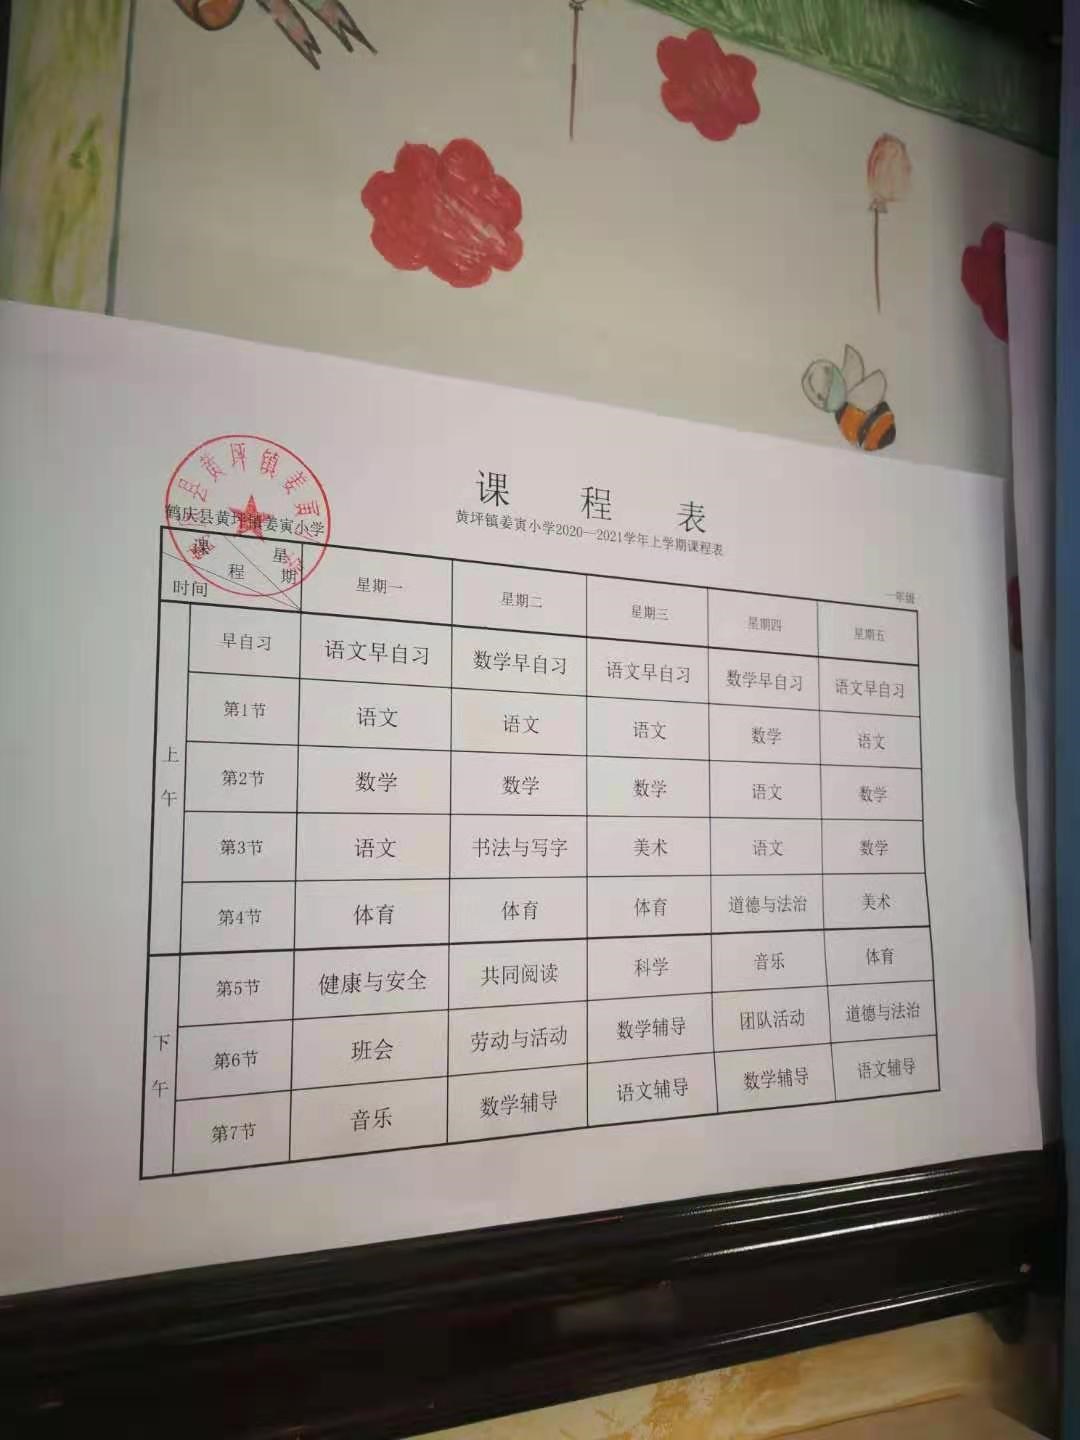 课程表
黄坪镇姜寅小学2020—2021学年上学期课程表
鹤庆县黄坪镇姜寅小学
县黄坪镇姜寅
一年级
课程 星期 时间 星期一 星期二 星期三 星期四 星期五
上午
早自习 语文早自习 数学早自习 语文早自习 数学早自习 语文早自习
第1节 语文 语文 语文 数学 语文
第2节 数学 数学 数学 语文 数学
第3节 语文 书法与写字 美术 语文 数学
第4节 体育 体育 体育 道德与法治 美术
下午
第5节 健康与安全 共同阅读 科学 音乐 体育
第6节 班会 劳动与活动 数学辅导 团队活动 道德与法治
第7节 音乐 数学辅导 语文辅导 数学辅导 语文辅导